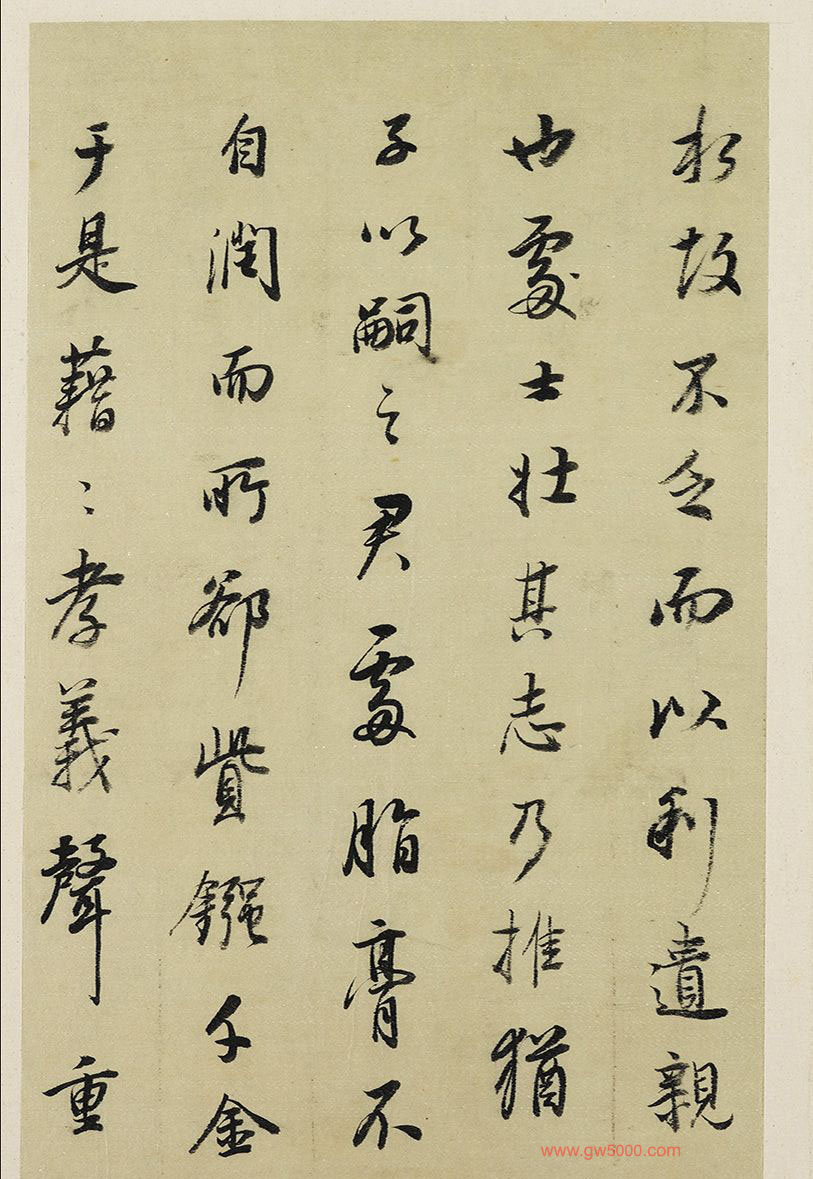 於故不乏而以利遺親
也處士壯其志乃推猶
子以嗣之君處脂膏不
自潤而所卻貲鏹千金
于是藉〻孝義聲重
www.gw5000.com